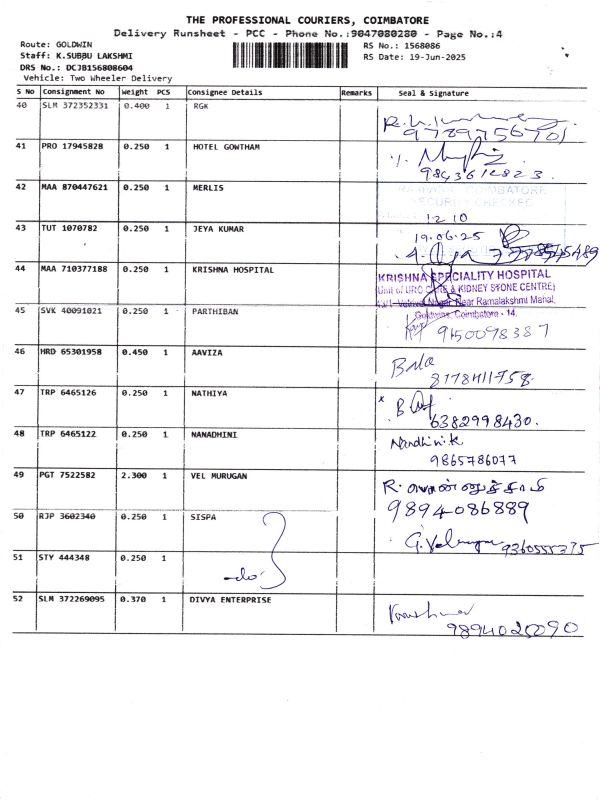 THE PROFESSIONAL COURIERS, COIMBATORE
Delivery Runsheet - PCC - Phone No.:9047080280 - Page No.:4
Route: GOLDWIN
Staff: K.SUBBU LAKSHMI
DRS No.: DCJB156808604
Vehicle: Two Wheeler Delivery
RS No.: 1568086
RS Date: 19-Jun-2025
S No Consignment No Weight PCS Consignee Details Remarks Seal & Signature
40 SLM 372352331 0.400 1 RGK
9789756701
41 PRO 17945828 0.250 1 HOTEL GOWTHAM
9843612823
42 MAA 870447621 0.250 1 MERLIS
COIMBATORE
SECURITY CHECKED
12 10
43 TUT 1070782 0.250 1 JEYA KUMAR
19.06.25
44 MAA 710377188 0.250 1 KRISHNA HOSPITAL
KRISHNA SPECIALITY HOSPITAL
Unit of URO CARE & KIDNEY STONE CENTRE)
Nagar, Near Ramalakshmi Mahal,
Goldwins, Coimbatore - 14.
45 SVK 40091021 0.250 1 PARTHIBAN
9150098387
46 HRD 65301958 0.450 1 AAVIZA
8778411758
47 TRP 6465126 0.250 1 NATHIYA
6382998430.
48 TRP 6465122 0.250 1 NANADHINI
Nandhini.K
9865786077
49 PGT 7522582 2.300 1 VEL MURUGAN
R.
9894086889
50 RJP 3602340 0.250 1 SISPA
G. Velmurugan 9360555375
51 STY 444348 0.250 1
-do-
52 SLM 372269095 0.370 1 DIVYA ENTERPRISE
9894020090